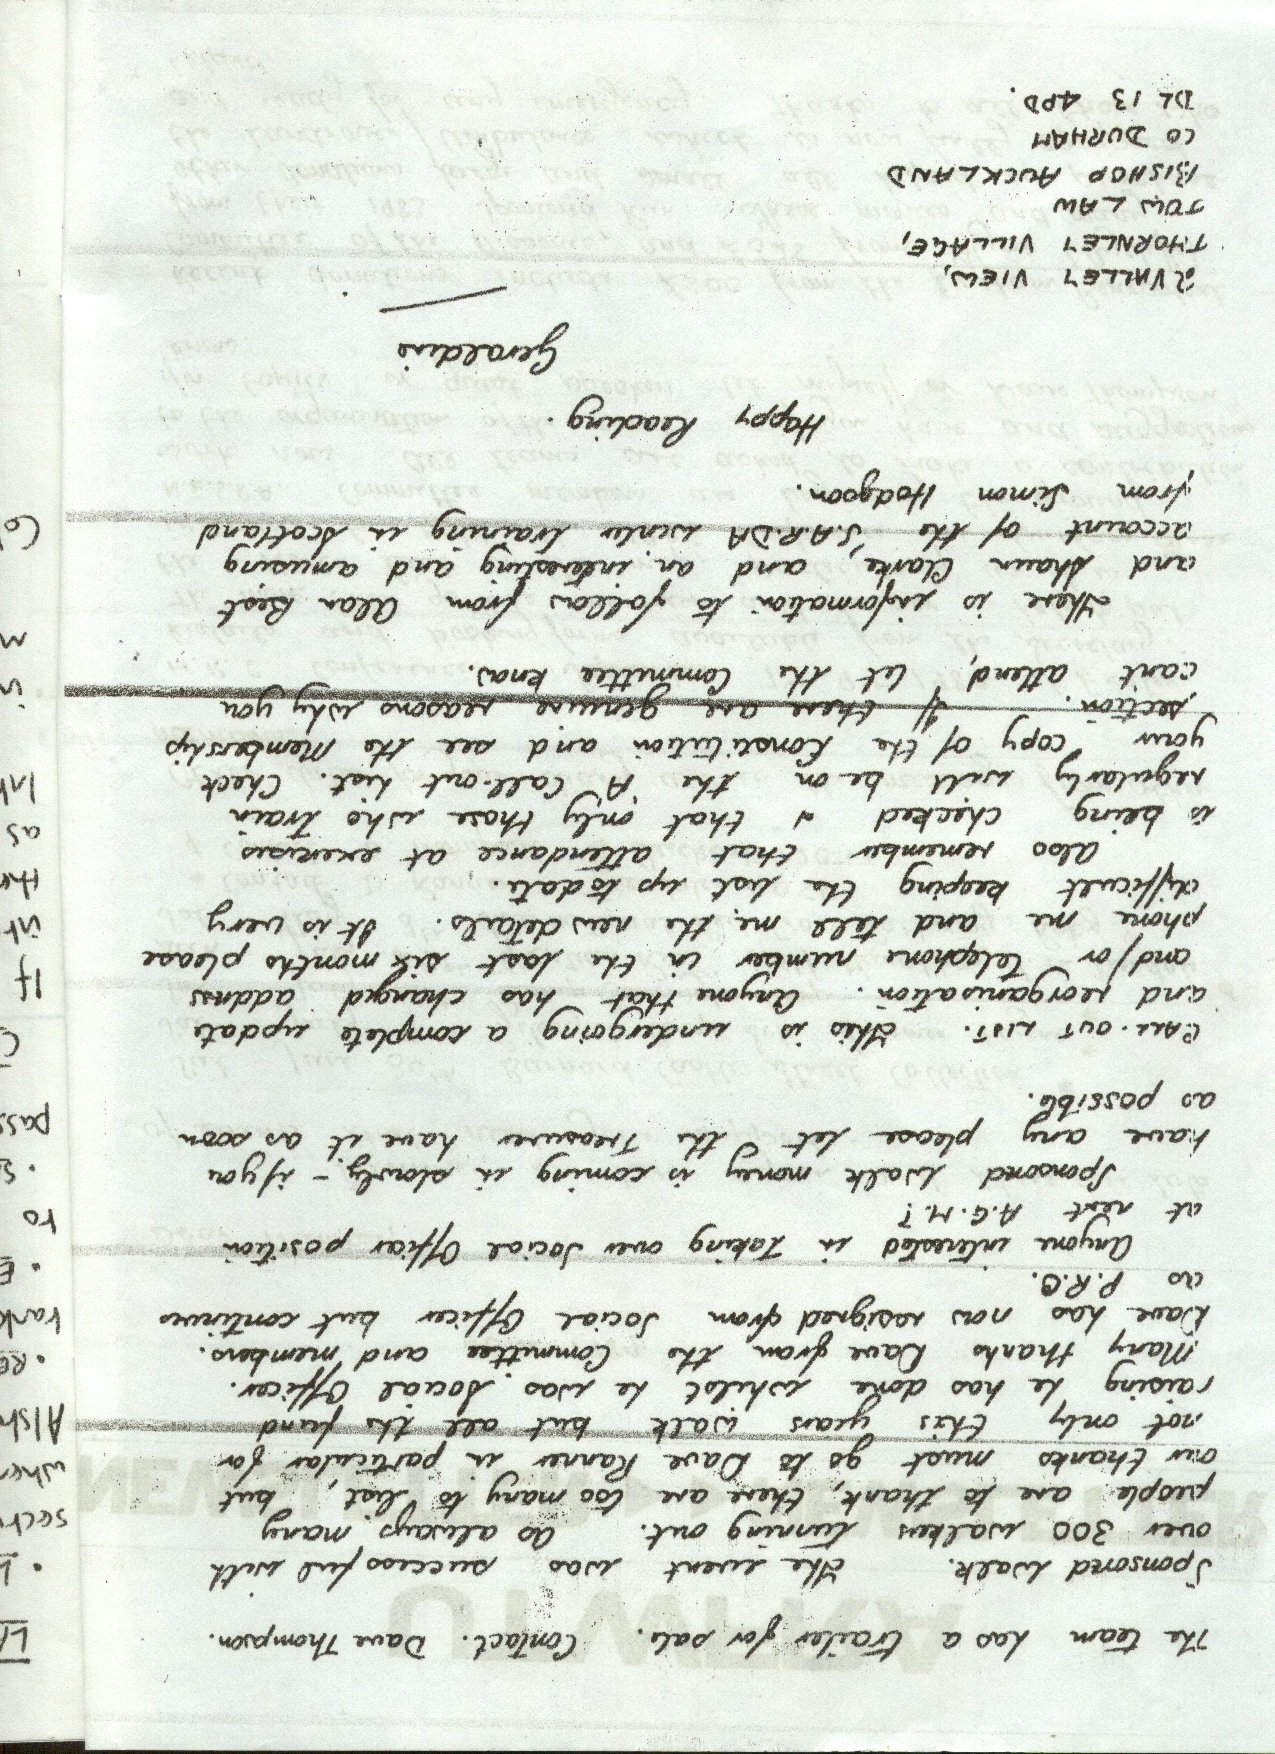 The team has a trailer for sale. Contact. Dave Thompson.
Sponsored Walk. The event was successful with
over 300 walkers turning out. As always, many
people are to thank, there are too many to list, but
our thanks must go to Dave Ranner in particular for
not only this years walk but all the fund
raising he has done whilst he was Social Officer.
Many thanks Dave from the Committee and members.
Dave has now resigned from Social Officer but continues
as P.R.O.
Anyone interested in taking over Social Officer position
at next A.G.M.?
Sponsored Walk money is coming in slowly - if you
have any please let the Treasurer have it as soon
as possible.
CALL-OUT LIST. This is undergoing a complete update
and reorganisation. Anyone that has changed address
and/or telephone number in the last six months please
phone me and tell me the new details. It is very
difficult keeping the list up to date.
Also remember that attendance at exercises
is being checked & that only those who train
regularly will be on the 'A' Call-out list. Check
your copy of the Constitution and see the Membership
section. If there are genuine reasons why you
cant attend, let the Committee know.
There is information to follow from Alan Best
and Shaun Clarke, and an interesting and amusing
account of the S.A.R.D.A winter training in Scotland
from Simon Hodgson.
Happy Reading.
Geraldine
2 VALLEY VIEW,
THORNLEY VILLAGE,
TOW LAW
BISHOP AUCKLAND
CO DURHAM
DL 13 4PD.